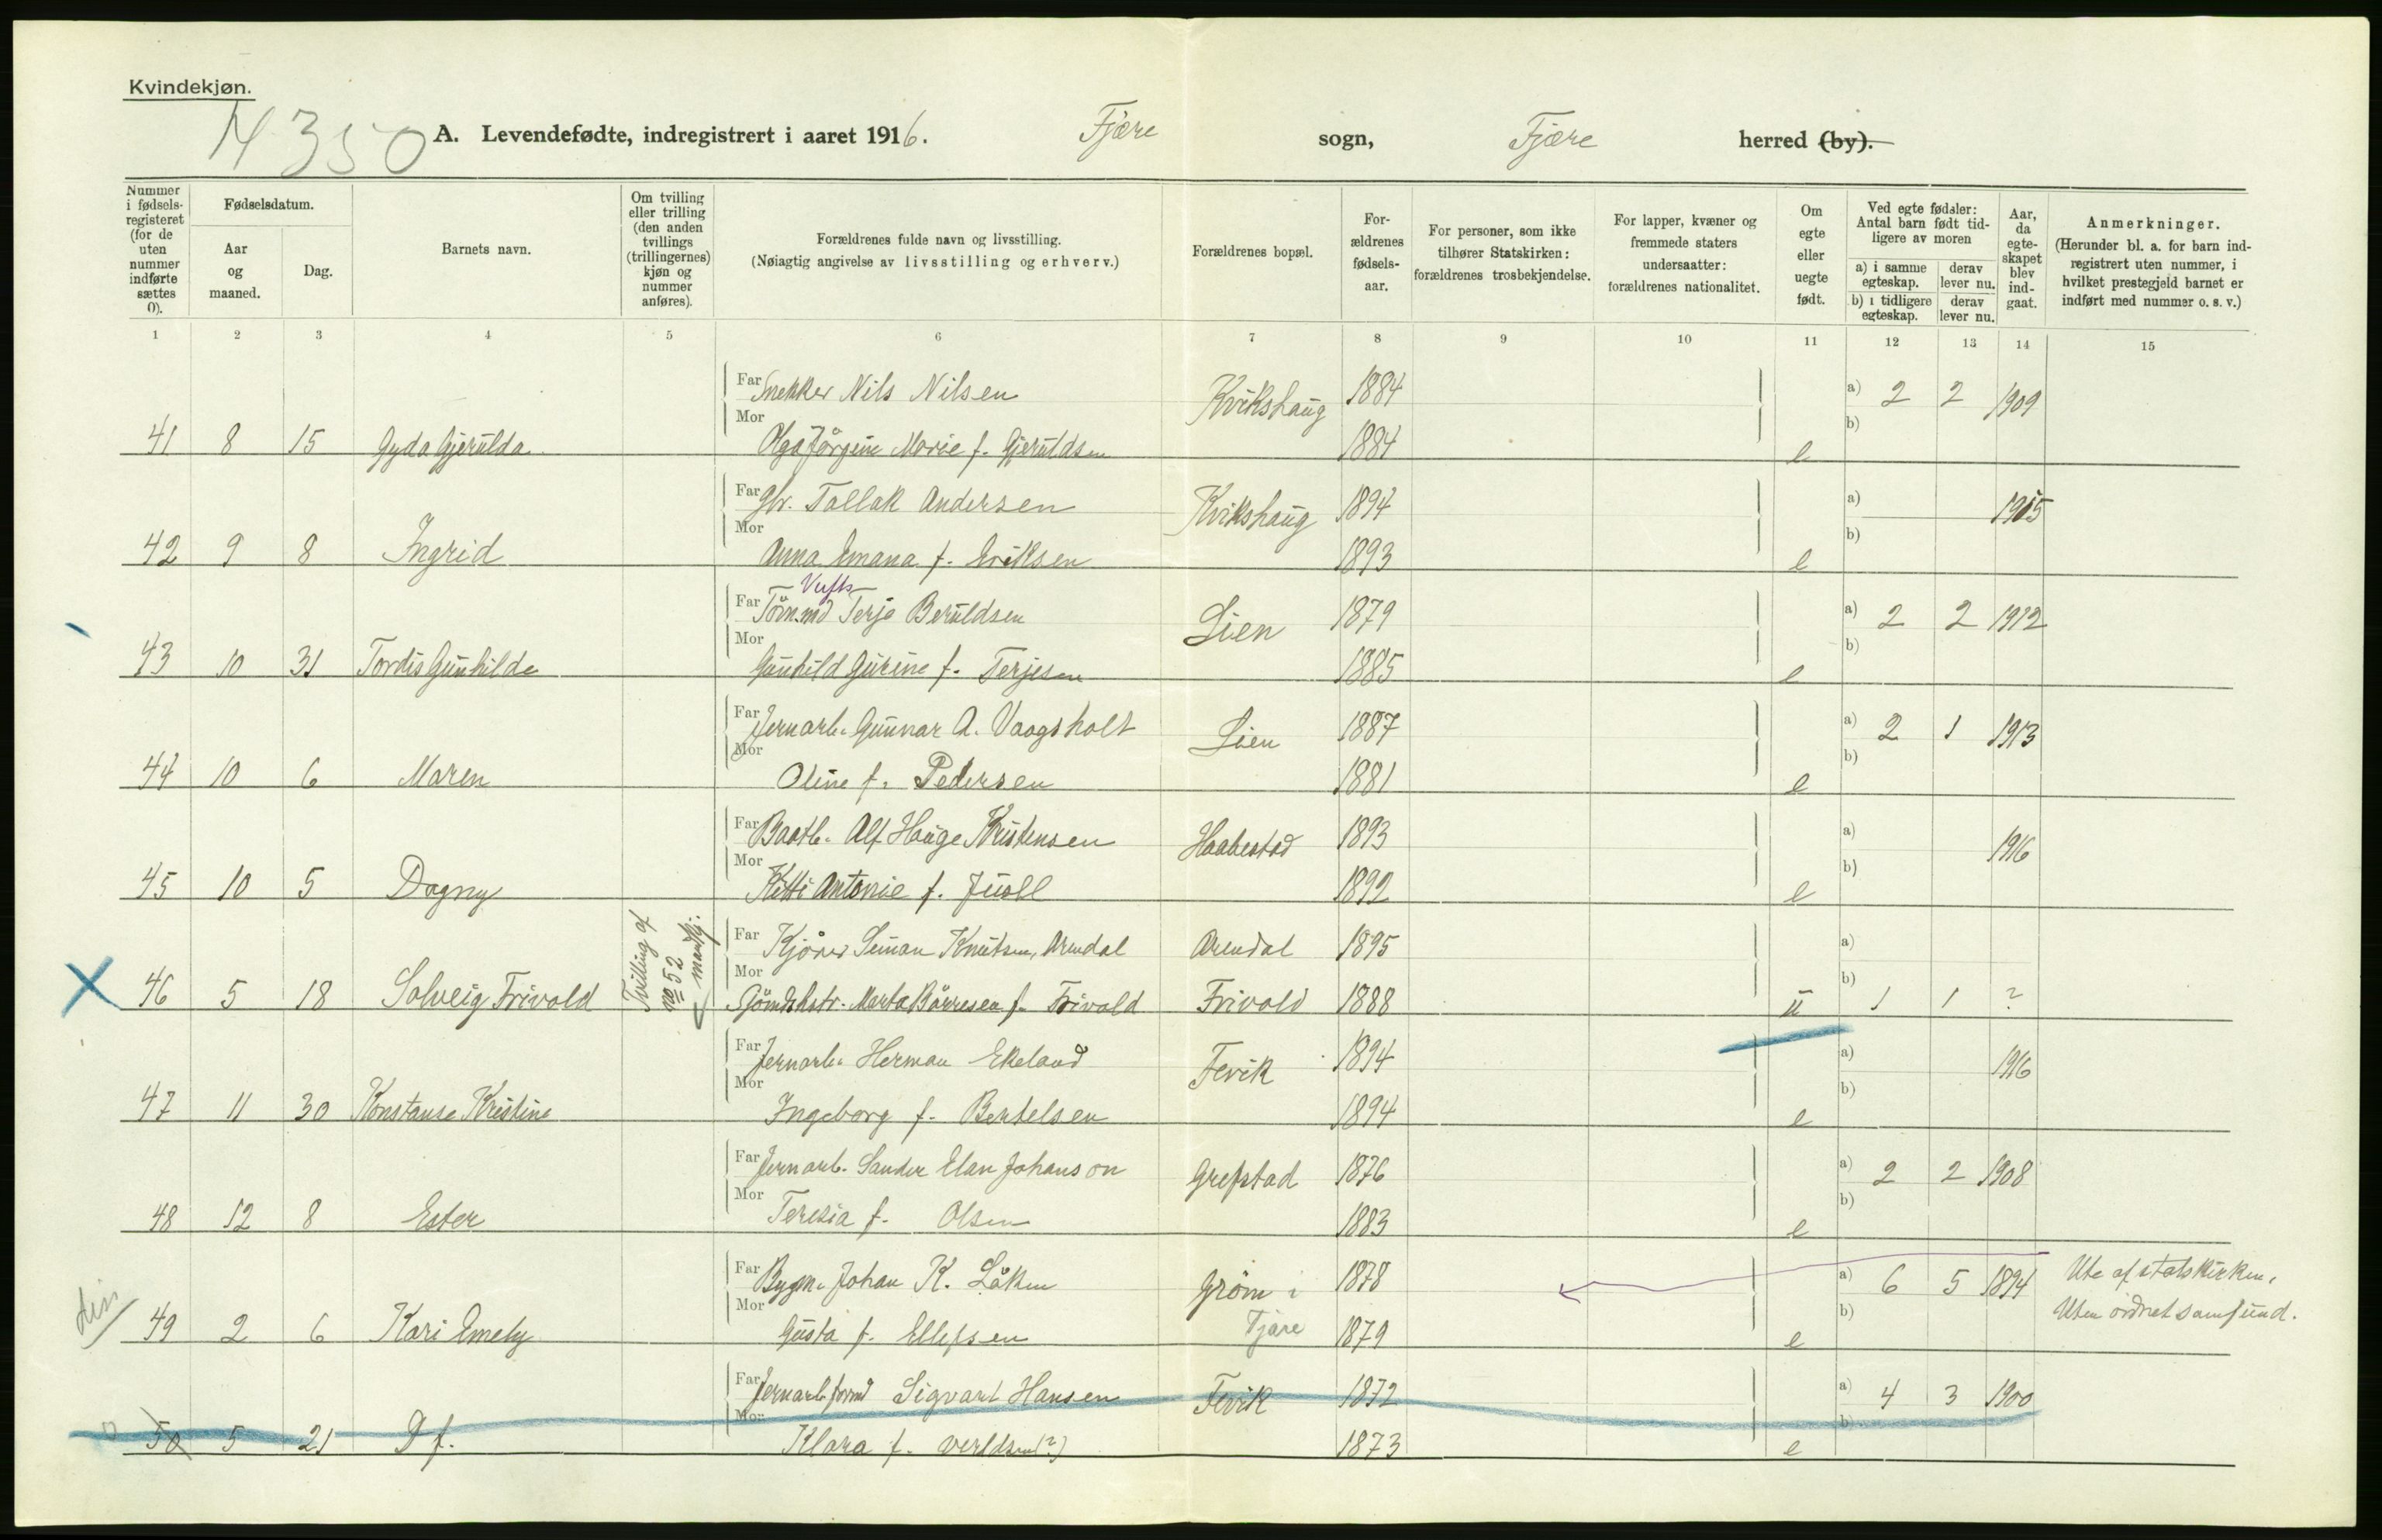 Kvindekjøn.
4350
A. Levendefødte, indregistrert i aaret 1916. Fjære sogn, Fjære herred (by).
Nummer i fødsels-registeret (for de uten nummer indførte sættes 0).
Fødselsdatum.
Aar og maaned.
Dag.
Barnets navn.
Om tvilling eller trilling (den anden tvillings (trillingernes) kjøn og nummer anføres).
Forældrenes fulde navn og livsstilling.
(Nøiagtig angivelse av livsstilling og erhverv.)
Forældrenes bopæl.
For-ældrenes fødsels-aar.
For personer, som ikke tilhører Statskirken: forældrenes trosbekjendelse.
For lapper, kvæner og fremmede staters undersaatter: forældrenes nationalitet.
Om egte eller uegte født.
Ved egte fødsler: Antal barn født tid-ligere av moren
a) i samme egteskap.
derav lever nu.
b) i tidligere egteskap.
derav lever nu.
Aar, da egte-skapet blev ind-gaat.
Anmerkninger.
(Herunder bl. a. for barn ind-registrert uten nummer, i hvilket prestegjeld barnet er indført med nummer o. s. v.)
1 2 3 4 5 6 7 8 9 10 11 12 13 14 15
Far Snekker Nils Nilsen Kvikshaug 1884 a) 2 2 1909
Mor b)
41 8 15 Gyda Gjerulda Olga Jørgine Marie f. Gjeruldsen 1884 e
Far Gbr. Tallak Andersen Kvikshaug 1894 a) 1915
Mor b)
42 9 8 Ingrid Anna Emana f. Eriksen 1893 e
Far Tømmd Terje Beruldsen Lien 1879 a) 2 2 1912
Mor b)
43 10 31 Tordis Gunhilde Gunhild Gurine f. Terjesen 1885 e
Far Jernarb. Gunnar A. Vaagsholt Lien 1887 a) 2 1 1913
Mor b)
44 10 6 Maren Oline f. Pedersen 1881 e
Far Baatb. Alf Hauge Kristensen Haabestad 1893 a) 1916
Mor b)
45 10 5 Dagny Kitti Antonie f. Juell 1892 e
Tvilling af no 52 mandkj.
Far Kjører Simon Knutsen, Arendal Arendal 1895 a)
Mor b)
46 5 18 Solveig Frivold Marta Børresen f. Frivold Frivold 1888 u 1 1 ?
Far Jernarb. Herman Ekeland Fevik 1894 a) 1916
Mor b)
47 11 30 Konstanse Kristine Ingeborg f. Bertelsen 1894 e
Far Jernarb. Sander Elan Johanson Grefstad 1876 a) 2 2 1908
Mor b)
48 12 8 Ester Teresia f. Olsen 1883 e
Far Bygm. Johan K. Løken Grøm i Fjære 1878 a) 6 5 1894 Ute af statskirken.
Mor b) Uten ordnet samfund.
49 2 6 Kari Emely Gusta f. Ellefsen 1879 e
Far Jernarb.formd Sigvart Hansen Fevik 1872 a) 4 3 1900
Mor b)
0 50 5 21 P f. Klara f. (?) 1873 e